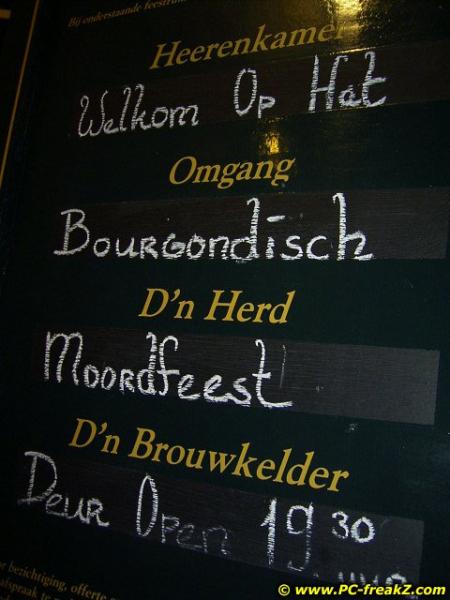 Bij onderstaande feestru
Heerenkamer
Welkom Op Hat
Omgang
Bourgondisch
D'n Herd
Moordfeest
D'n Brouwkelder
Deur Open 19 30
uur
bezichtiging, offerte
afspraak te
© www.PC-freakZ.com